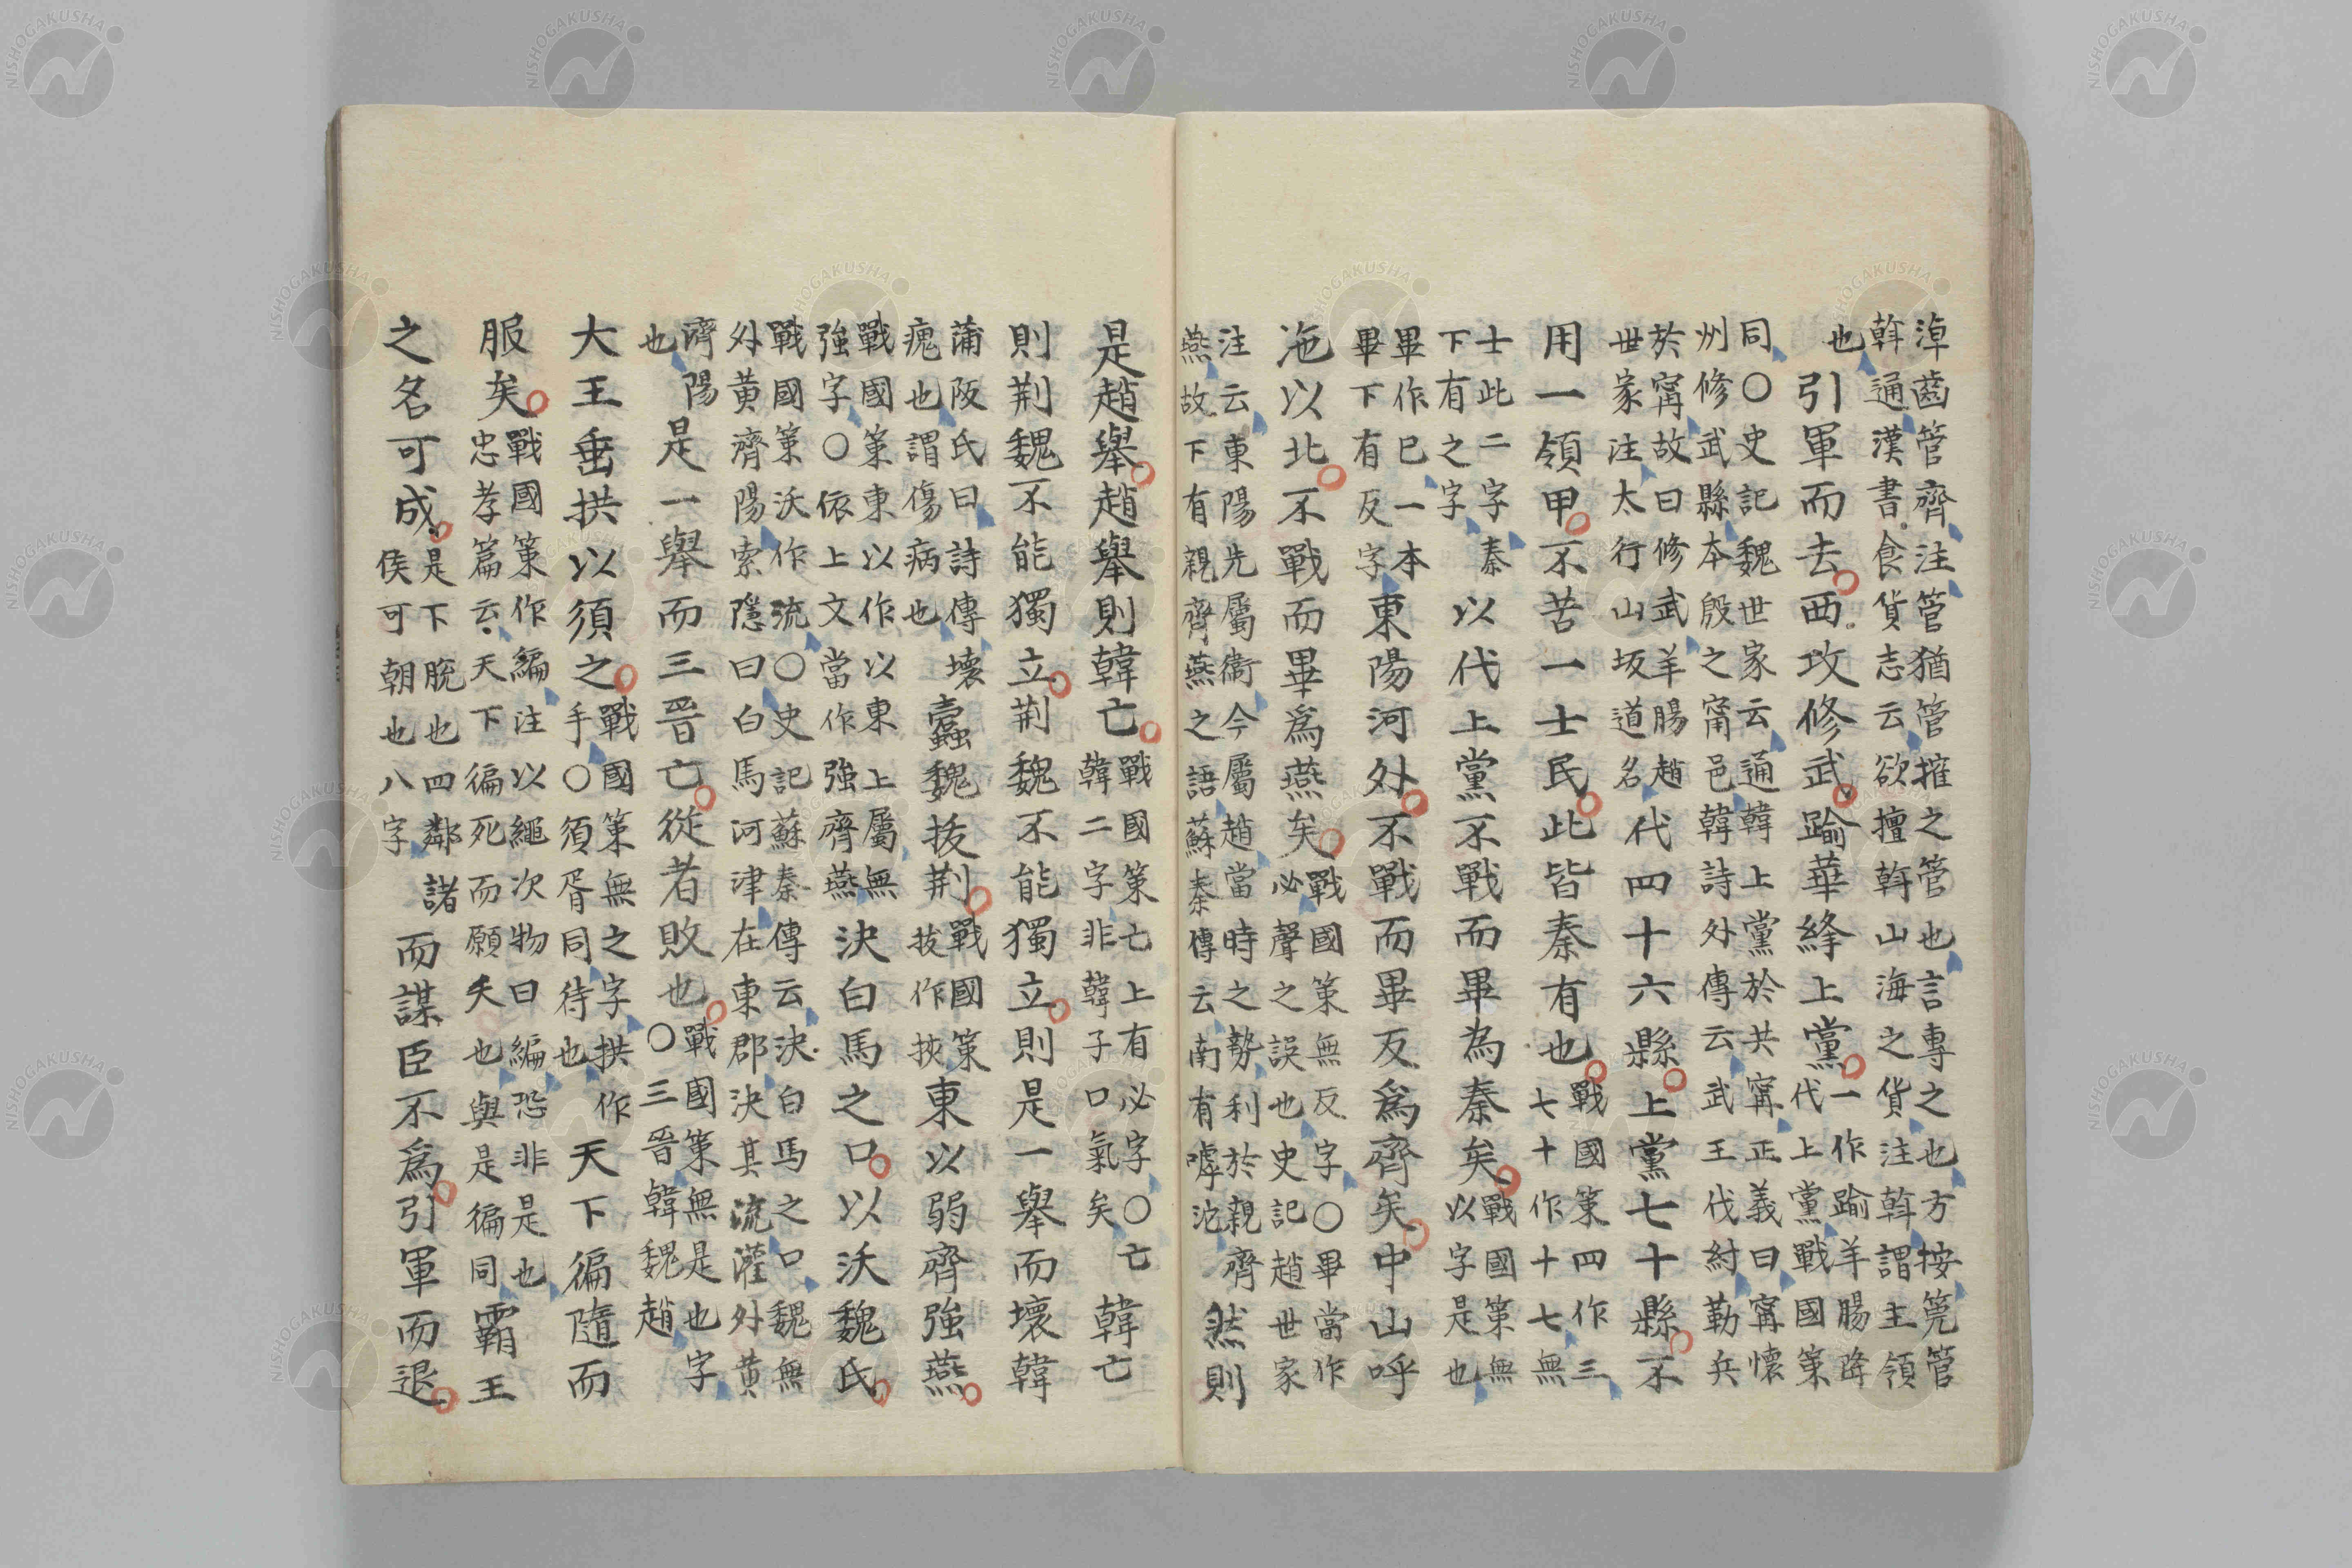 淖齒管齊注管猶管擁之管也言專之也方按筦管
斡通漢書食貨志云欲擅斡山海之貨注斡謂主領
也引軍而去西攻修武踰華絳上黨一作踰羊腸降代上黨戰國策
同○史記魏世家云通韓上黨於共甯正義曰甯懷
州修武縣本殷之甯邑韓詩外傳云武王伐紂勒兵
於甯故曰修武羊腸趙世家注太行山坂道名代四十六縣上黨七十縣不
用一領甲不苦一士民此皆秦有也戰國策四作三七十作十七無
士此二字秦下有之字以代上黨不戰而畢為秦矣戰國策無以字是也
畢作已一本畢下有反字東陽河外不戰而畢反爲齊矣中山呼
沲以北不戰而畢爲燕矣戰國策無反字○畢當作必聲之誤也史記趙世家
注云東陽先屬衞今屬趙當時之勢利於親齊燕故下有親齊燕之語蘇秦傳云南有嘑沱然則
是趙舉趙舉則韓亡戰國策亡上有必字○亡韓二字非韓子口氣矣韓亡
則荆魏不能獨立荆魏不能獨立則是一舉而壞韓
蒲阪氏曰詩傳壞瘣也謂傷病也蠹魏拔荆戰國策拔作挾東以弱齊強燕
戰國策東以作以東上屬無強字○依上文當作強齊燕決白馬之口以沃魏氏
戰國策沃作流○史記蘇秦傳云決白馬之口魏無
外黄濟陽索隱曰白馬河津在東郡決其流灌外黄
濟陽也是一舉而三晉亡從者敗也戰國策無是也字○三晉韓魏趙
大王垂拱以須之戰國策無之字拱作手○須胥同待也天下徧隨而
服矣戰國策作編注以繩次物曰編恐非是也忠孝篇云天下徧死而願夭也與是徧同霸王
之名可成是下脱也四鄰諸侯可朝也八字而謀臣不爲引軍而退